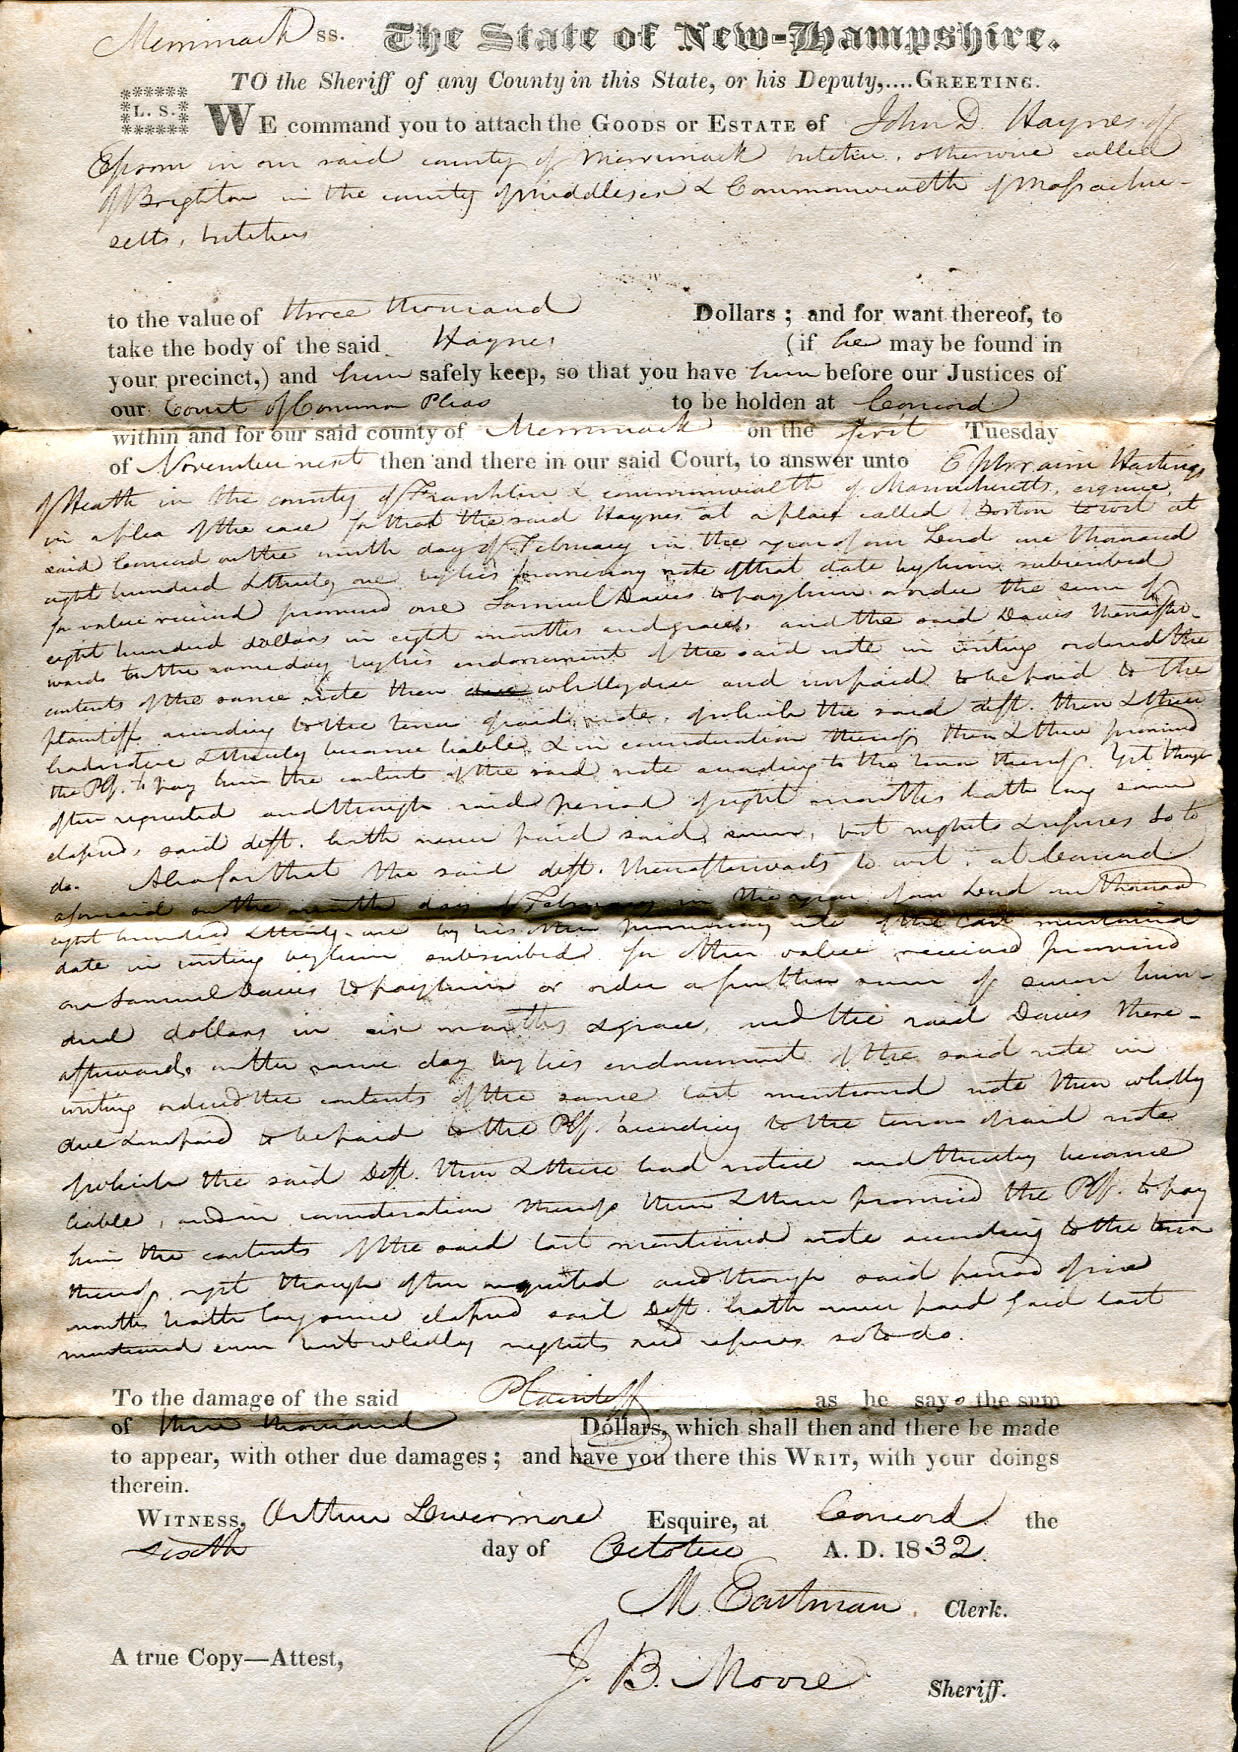 Merrimack ss. The State of New-Hampshire.
TO the Sheriff of any County in this State, or his Deputy,....GREETING.
L. S.
WE command you to attach the GOODS or ESTATE of John D. Haynes of
Epsom in our said county of Merrimack butcher, otherwise called
of Brighton in the county of Middlesex & Commonwealth of Massachu-
setts, butcher
to the value of three thousand Dollars ; and for want thereof, to
take the body of the said Haynes (if he may be found in
your precinct,) and him safely keep, so that you have him before our Justices of
our Court of Common Pleas to be holden at Concord
within and for our said county of Merrimack on the first Tuesday
of November next then and there in our said Court, to answer unto Ephraim Hastings
of Heath in the county of Franklin & commonwealth of Massachusetts, esquire,
in a plea of the case for that the said Haynes at a place called Boston to wit at
said Concord on the ninth day of February in the year of our Lord one thousand
eight hundred & thirty one by his promissory note of that date by him subscribed
for value received promised one Samuel Davis to pay him or order the sum of
eight hundred dollars in eight months and grace, and the said Davis thereafter-
wards on the same day by his endorsement of the said note in writing ordered the
contents of the same note then wholly due and unpaid to be paid to the
plaintiff according to the tenor of said note, of which the said deft. then & there
had notice & thereby became liable, & in consideration thereof then & there promised
the Plf. to pay him the contents of the said note according to the tenor thereof. Yet though
often requested and though said period of eight months hath long since
elapsed, said deft. hath never paid said sum, but neglects & refuses so to
do. Also for that the said deft. thereafterwards to wit, at Concord
aforesaid on the ninth day of February in the year of our Lord one thousand
eight hundred & thirty-one by his other promissory note of the last mentioned
date in writing by him subscribed for other value received promised
one Samuel Davis to pay him or order a further sum of seven hun-
dred dollars in six months & grace, and the said Davis there-
afterwards on the same day by his endorsement of the said note in
writing ordered the contents of the same last mentioned note then wholly
due & unpaid to be paid to the Plf. according to the tenor of said note
of which the said Deft. then & there had notice and thereby became
liable, and in consideration thereof then & there promised the Plf. to pay
him the contents of the said last mentioned note according to the tenor
thereof, yet though often requested and though said period of six
months hath long since elapsed said Deft. hath never paid said last
mentioned sum but wholly neglects and refuses so to do.
To the damage of the said Plaintiff as he says the sum
of three thousand Dollars, which shall then and there be made
to appear, with other due damages ; and have you there this WRIT, with your doings
therein.
WITNESS, Arthur Livermore Esquire, at Concord the
sixth day of October A. D. 1832.
M. Eastman, Clerk.
A true Copy—Attest,
J. B. Moore Sheriff.